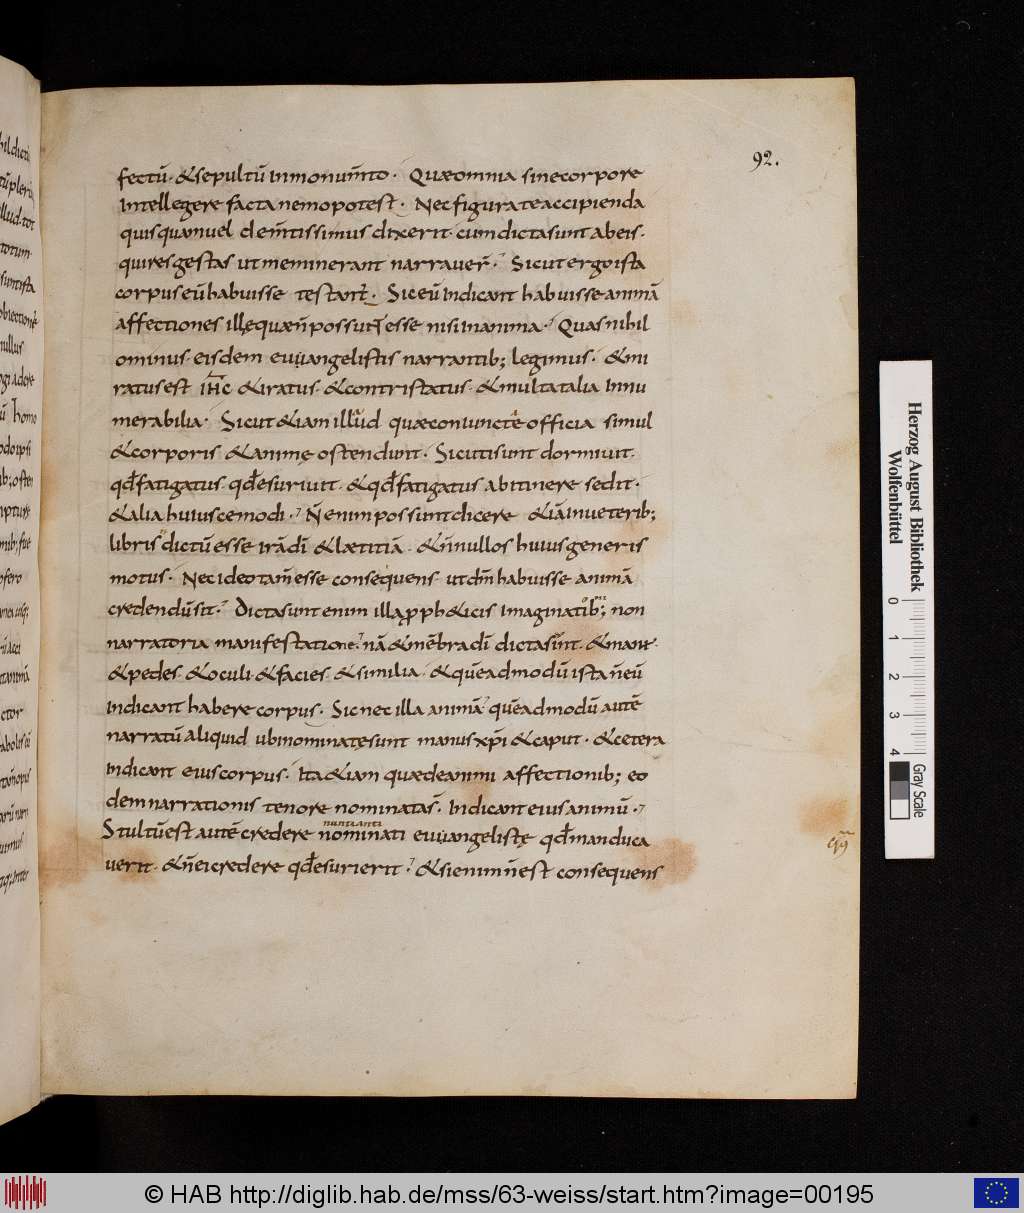 92.
fectū· &sepultū Inmonum̄to· Quæomnia sinecorpore
Intellegere facta nemopotest· Nec figurateaccipienda
quisquamuel clem̄tissimus dixerit· cumdictasunt abeis·
quiresgestas utmeminerant narrauer̄· Sicut ergo ista
corpus eū habuisse testant᷑· Sic eū Indicant habuisse animā
affectiones illę quæ n̄ possunt esse nisi In anima· Quas nihil
ominus· eisdem euuangelistis narrantib; legimus· & mi
ratus est ihc̄ & iratus· & contristatus· & multa talia Innu
merabilia· Sicut & iam illud quæ coniuncte officia simul
& corporis & animę ostendunt· Sicuti sunt dormiuit·
qđ fatigatus· qđ esuriuit· & qđ fatigatus ab itinere sedit·
& alia huiuscemodi· N̄ enim possunt dicere & iā In ueterib;
libris dictū esse Irā dī & lætitiā· & n̄nullos huius generis
motus· Nec ideo tam̄ esse consequens· ut dm̄ habuisse animā
credendū sit· Dicta sunt enim illa ꝓph&icis Imaginatib; non
narratoria manifestatione· nā & mēbra dī dicta sunt· & manus·
& pedes· & oculi· & facies· & similia· & quēadmodū ista n̄ eū
Indicant habere corpus· Sic nec illa animā quēadmodū autē
narratū aliquid ubi nominate sunt manus xp̄i & caput· & cetera
Indicant eius corpus· Ita & iam quæ de animi affectionib; eo
dem narrationis tenore nominatas̄· Indicant eius animū·
nuntianti
Stultū est autē credere nominati euuangelistę qđ manduca
uerit· & n̄ ei credere qđ esurierit· & si enim n̄ est consequens
Herzog August Bibliothek
Wolfenbüttel
0 1 2 3 4
Gray Scale
© HAB http://diglib.hab.de/mss/63-weiss/start.htm?image=00195